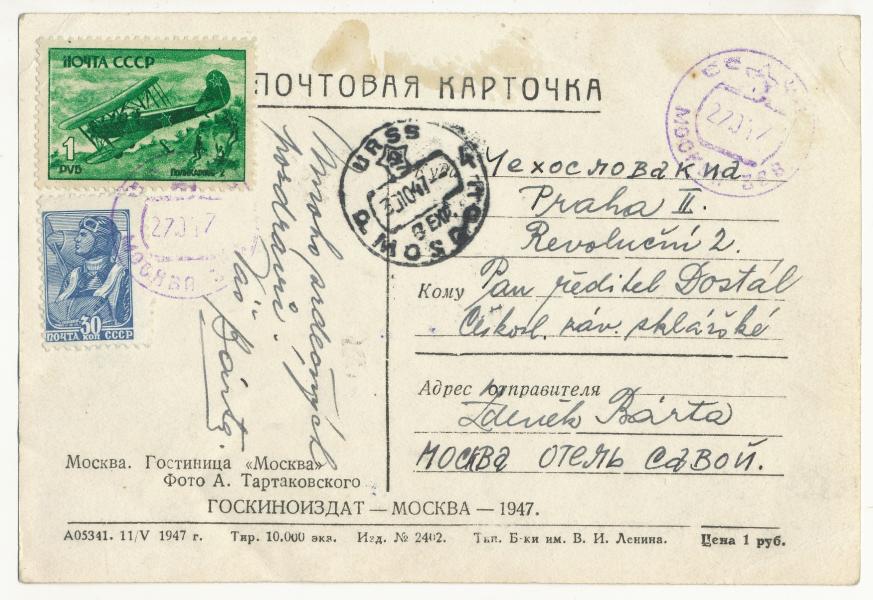 ПОЧТА СССР
1
РУБ
ПОЛИКАРПОВ-2
30
КОП
ПОЧТА СССР
ПОЧТОВАЯ КАРТОЧКА
МОСКВА
URSS
MOSCOU
EXP.
МОСКВА
Mnoho srdečných
pozdravů.
Váš Bárta.
Чехословакиа
Praha II.
Revoluční 2.
Кому Pan ředitel Dostál
Českosl. záv. sklářské
Адрес отправителя
Zdeněk Bárta
МОСКВА ОТЕЛЬ САВОЙ.
Москва. Гостиница «Москва»
Фото А. Тартаковского
ГОСКИНОИЗДАТ — МОСКВА — 1947.
А05341. 11/V 1947 г. Тир. 10.000 экз. Изд. № 2402. Тип. Б-ки им. В. И. Ленина. Цена 1 руб.